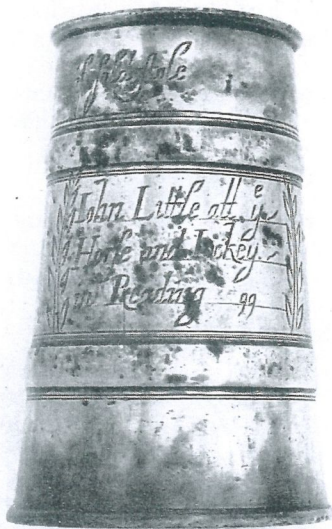 John Little att yᵉ
Horſe and Jockey
in Reading 99